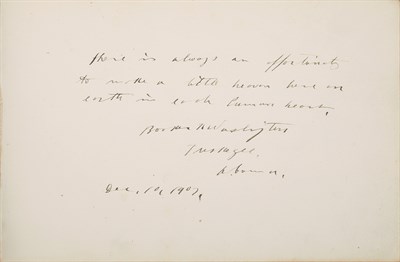 there is always an opportunity
to make a little heaven here on
earth in each human heart,
Booker T Washington
Tuskegee,
Alabama,
Dec, 10, 1907,